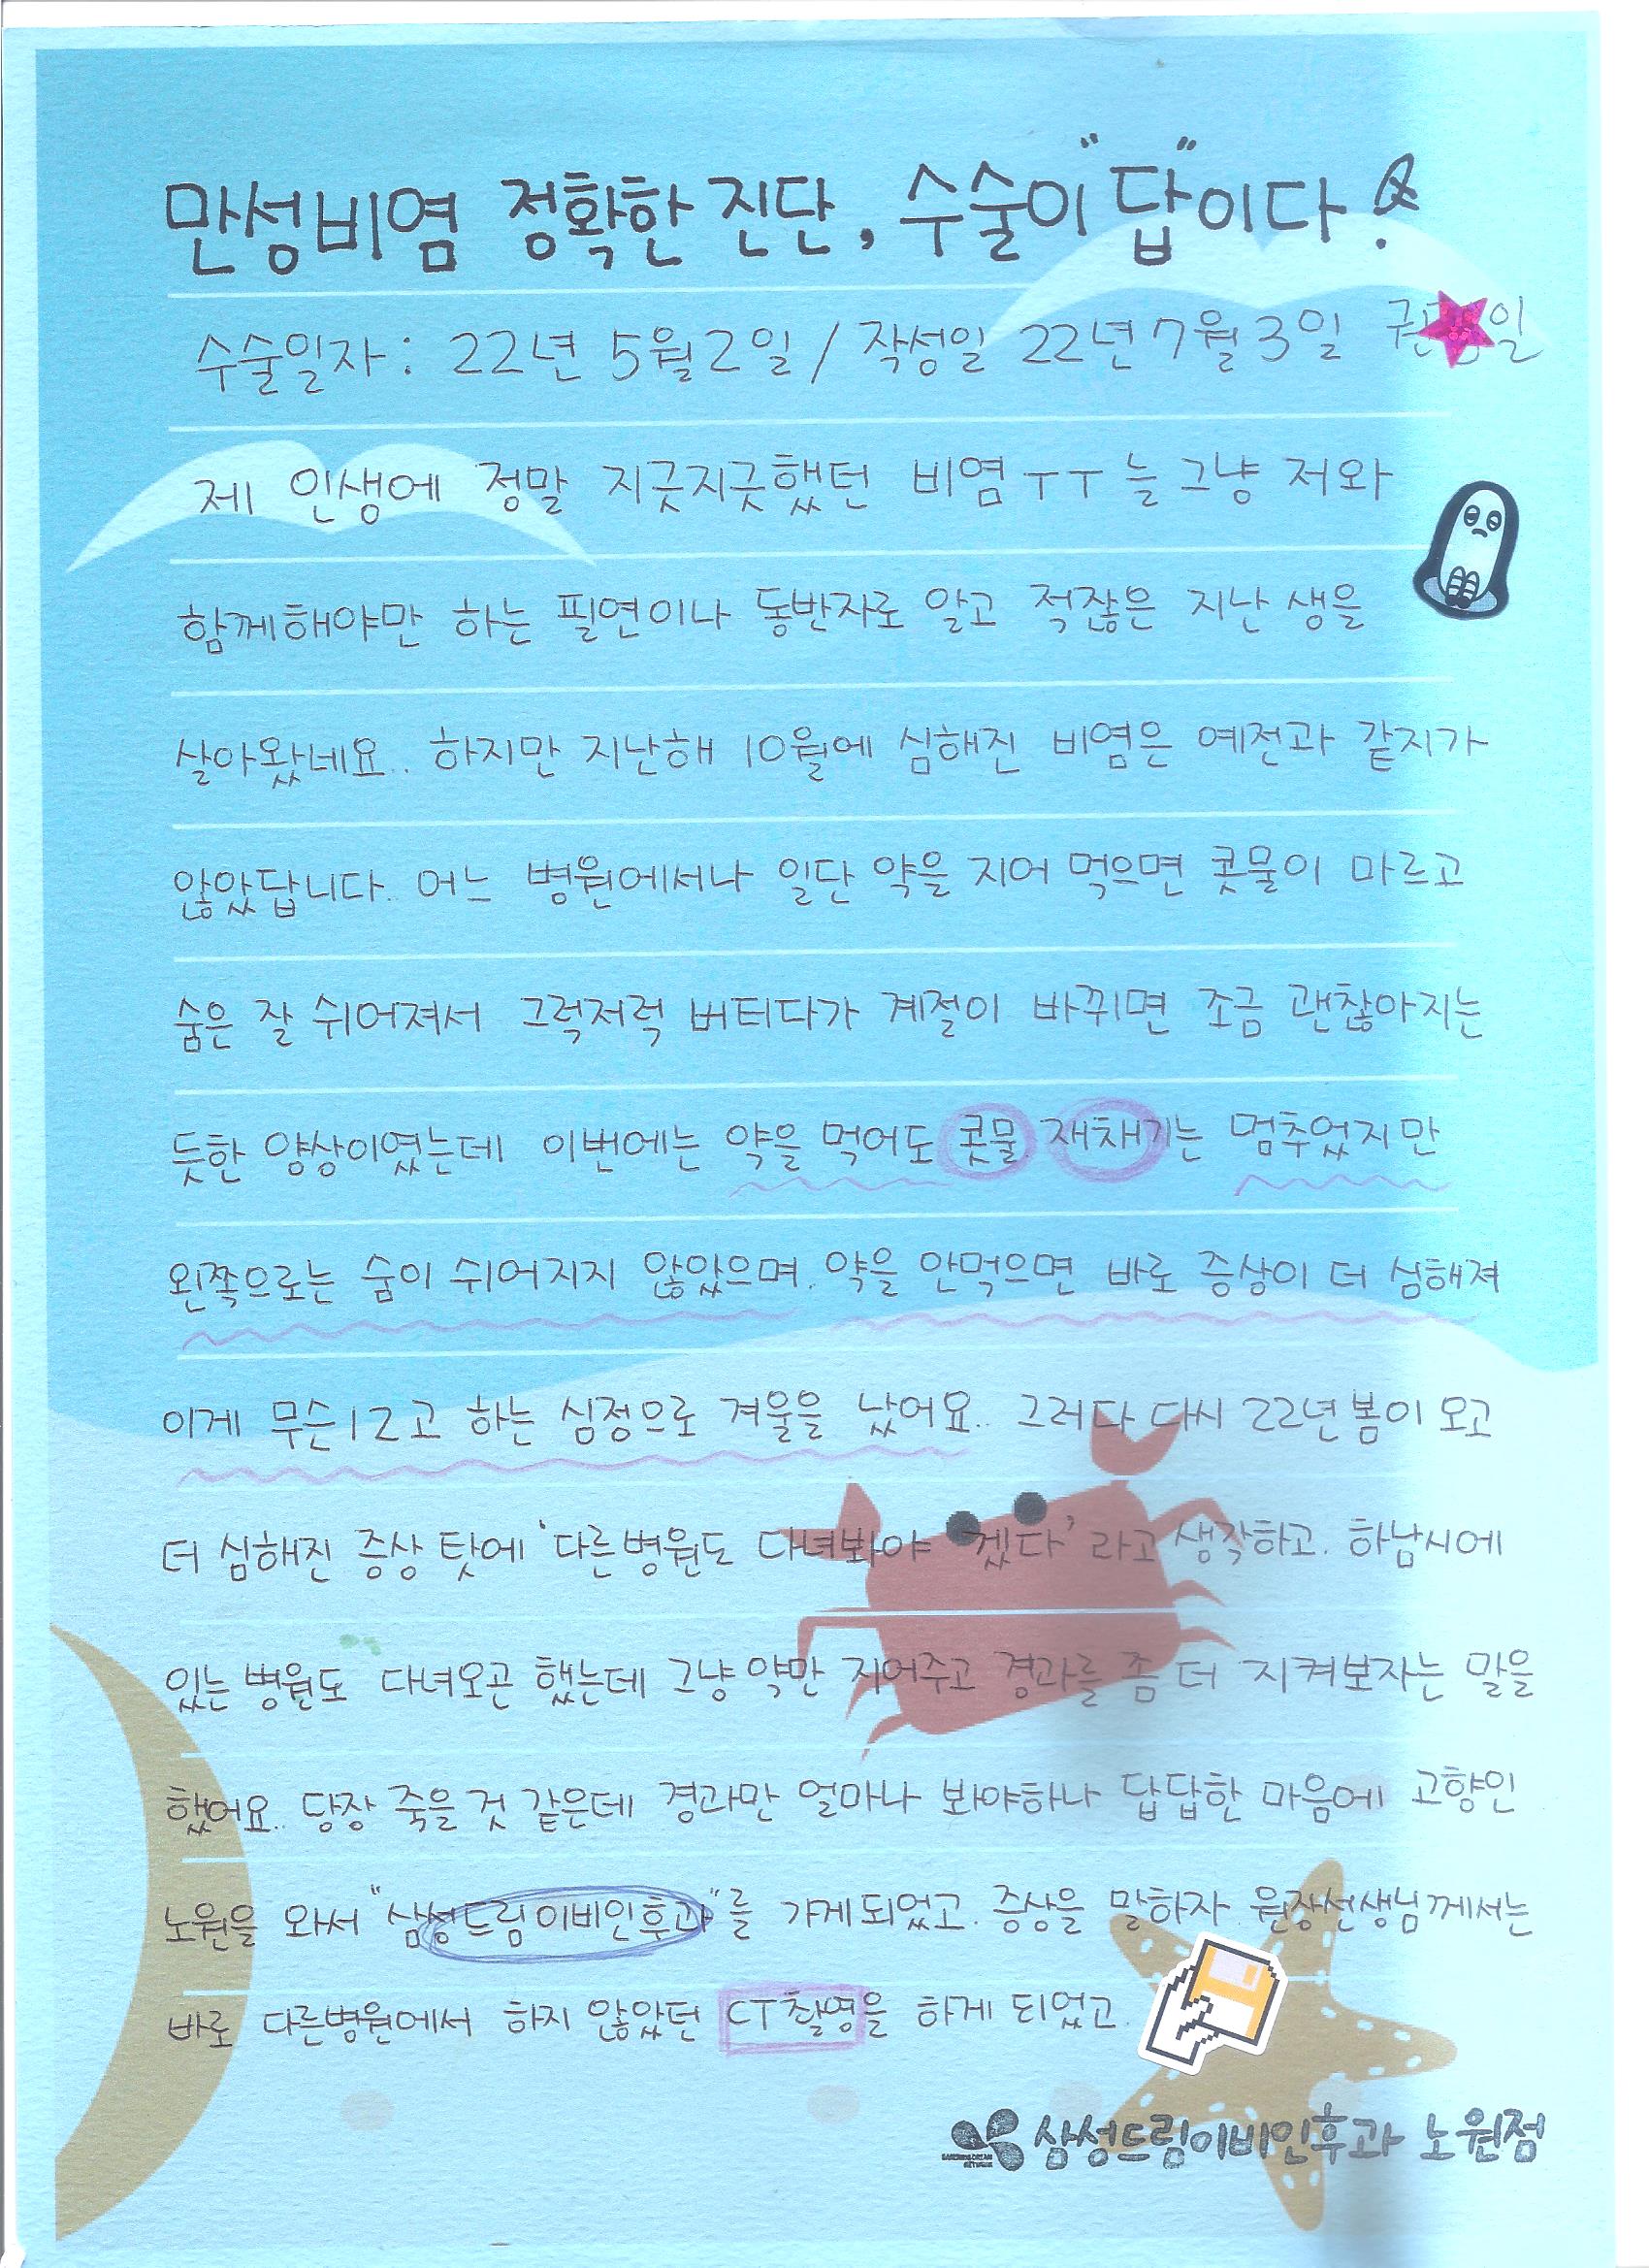 만성비염 정확한 진단, 수술이 "답"이다!
수술일자: 22년 5월 2일 / 작성일 22년 7월 3일 일
제 인생에 정말 지긋지긋했던 비염ㅜㅜ 는 그냥 저와
함께해야만 하는 필연이나 동반자로 알고 적잖은 지난 생을
살아왔네요.. 하지만 지난해 10월에 심해진 비염은 예전과 같지가
않았답니다. 어느 병원에서나 일단 약을 지어 먹으면 콧물이 마르고
숨은 잘 쉬어져서 그럭저럭 버티다가 계절이 바뀌면 조금 괜찮아지는
듯한 양상이였는데 이번에는 약을 먹어도 콧물 재채기는 멈추었지만
왼쪽으로는 숨이 쉬어지지 않았으며. 약을 안먹으면 바로 증상이 더 심해져
이게 무슨12고 하는 심정으로 겨울을 났어요.. 그러다 다시 22년 봄이 오고
더 심해진 증상 탓에 '다른병원도 다녀봐야 겠다' 라고 생각하고. 하남시에
있는 병원도 다녀오곤 했는데 그냥 약만 지어주고 경과를 좀 더 지켜보자는 말을
했어요.. 당장 죽을 것 같은데 경과만 얼마나 봐야하나 답답한 마음에 고향인
노원을 와서 "삼성드림이비인후과"를 가게되었고. 증상을 말하자 원장선생님께서는
바로 다른병원에서 하지 않았던 CT촬영을 하게 되었고.
삼성드림이비인후과 노원점